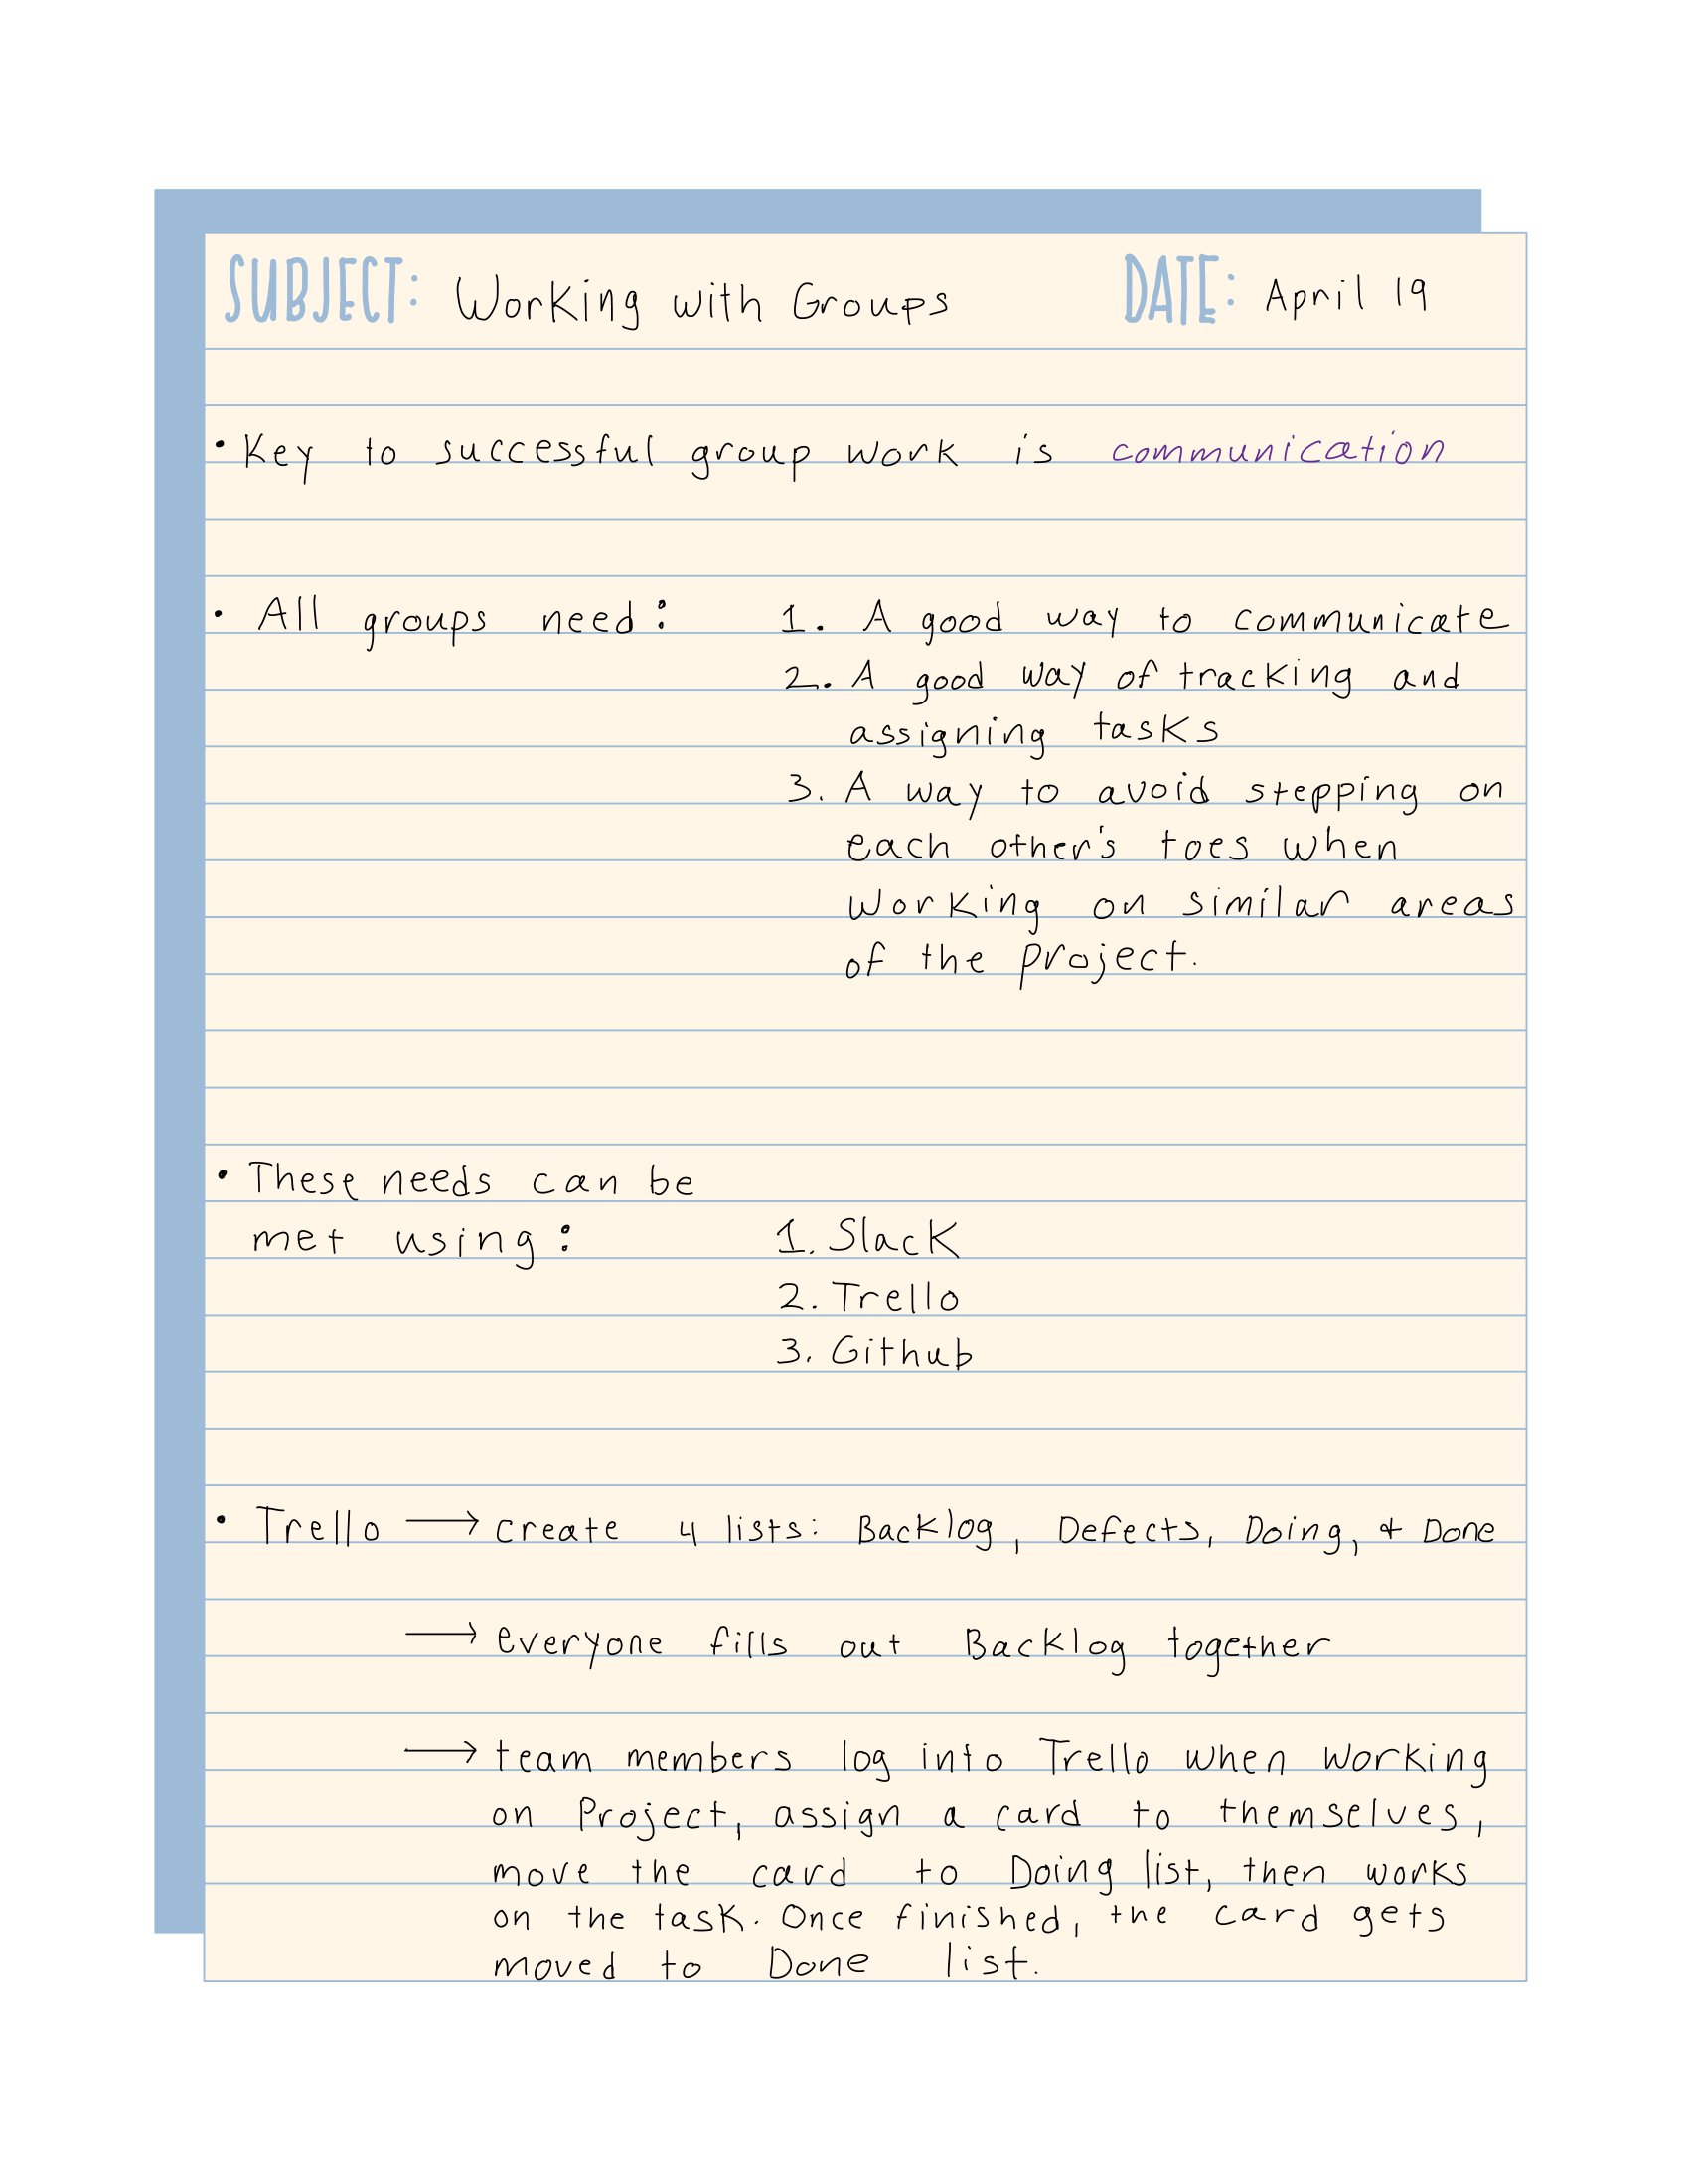 SUBJECT: Working with Groups DATE: April 19
• Key to successful group work is communication
• All groups need: 1. A good way to communicate
2. A good way of tracking and
assigning tasks
3. A way to avoid stepping on
each other's toes when
working on similar areas
of the project.
• These needs can be
met using: 1. Slack
2. Trello
3. Github
• Trello → create 4 lists: Backlog, Defects, Doing, & Done
→ everyone fills out Backlog together
→ team members log into Trello when working
on Project, assign a card to themselves,
move the card to Doing list, then works
on the task. Once finished, the card gets
moved to Done list.